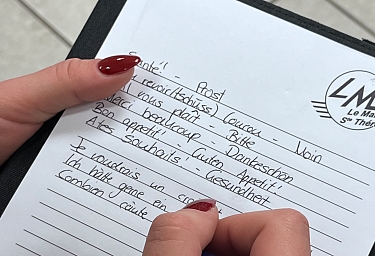 Santé! - Prost
revoir(tschüss) Coucou - Noin
vous plaît - Bitte
Merci beaucoup - Dankeschön
Bon appetit! - Guten Appetit!
A tes souhaits! - Gesundheit
Je voudrais un
Ich hätte gerne ein
Combien coûte
LM
Le Ma
Ste Thér